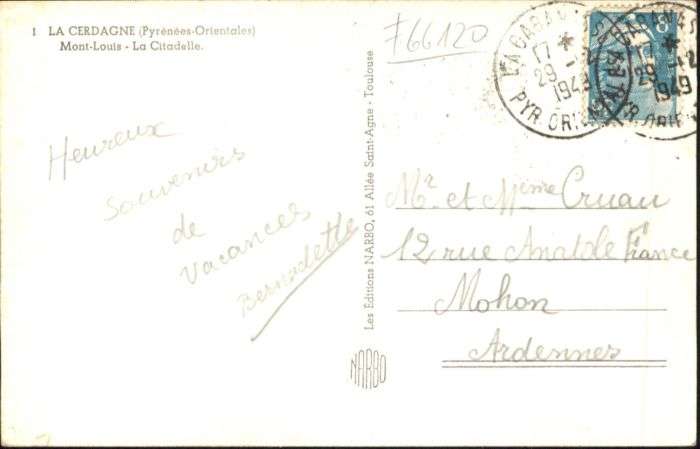 1 LA CERDAGNE (Pyrénées-Orientales)
Mont-Louis - La Citadelle.
#66120
LA CABANASSE
17 *
29 -12
1949
PYR. ORIENTALES
LA CABANASSE
17 *
29 -12
1949
PYR. ORIENTALES
Heureux
Souvenirs
de
Vacances
Bernadette
Les Editions NARBO, 61 Allée Saint-Agne - Toulouse
NARBO
Mr et Mme Cruau
12 rue Anatole France
Mohon
Ardennes